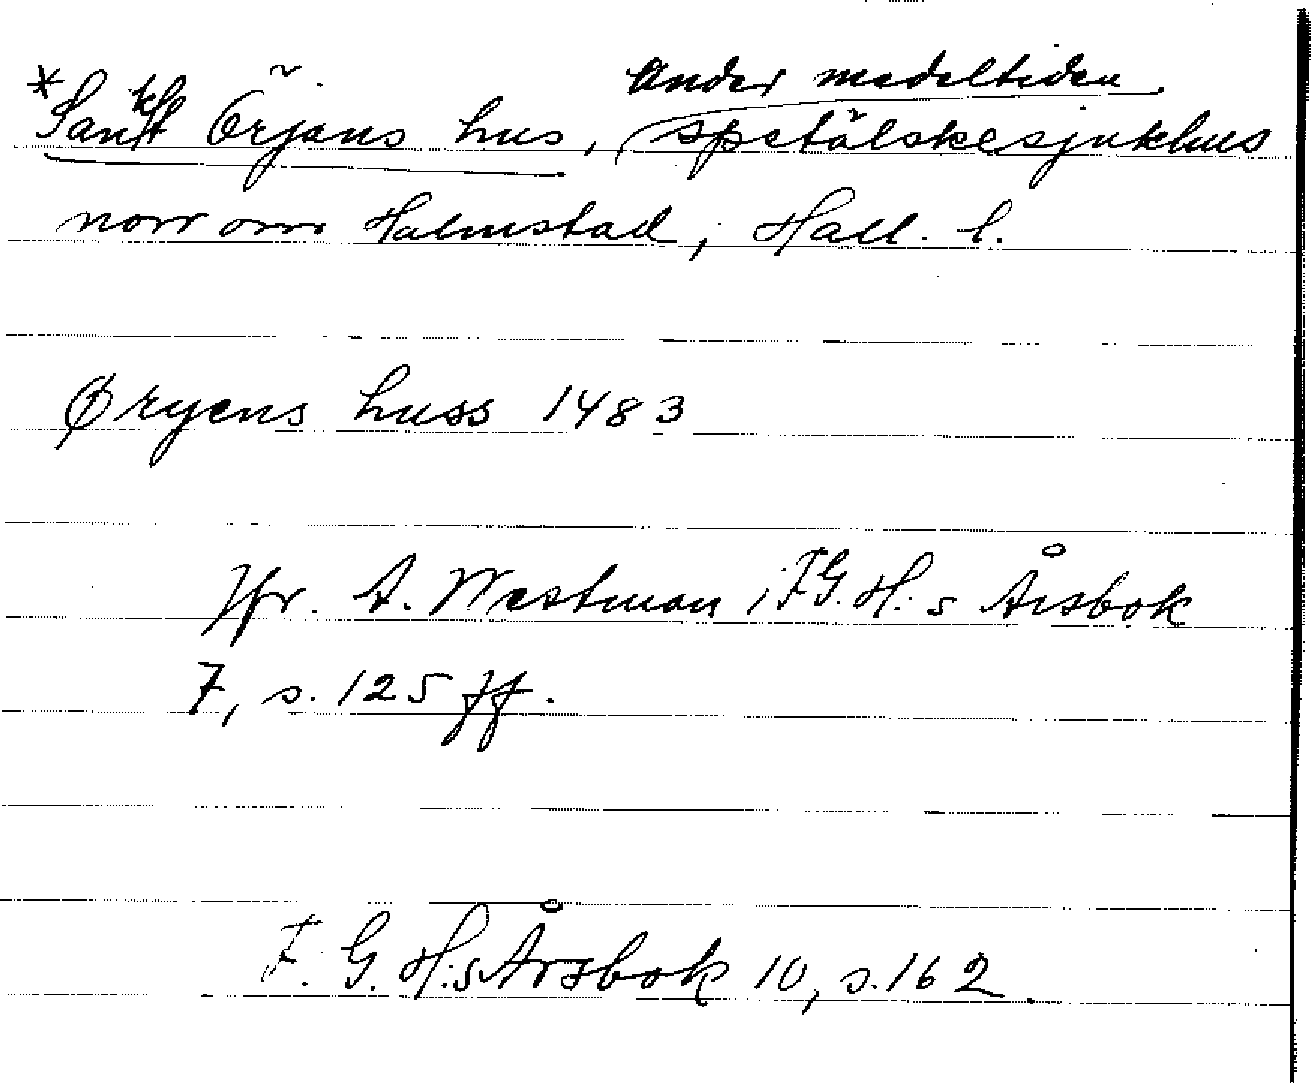 *Sankt Örjans hus, under medeltiden spetälskesjukhus
norr om Halmstad, Hall. l.
Øryens huss 1483
Jfr. A. Westman i F.G.H.:s Årsbok
7, s. 125 ff.
F. G. H.:s Årsbok 10, s. 162